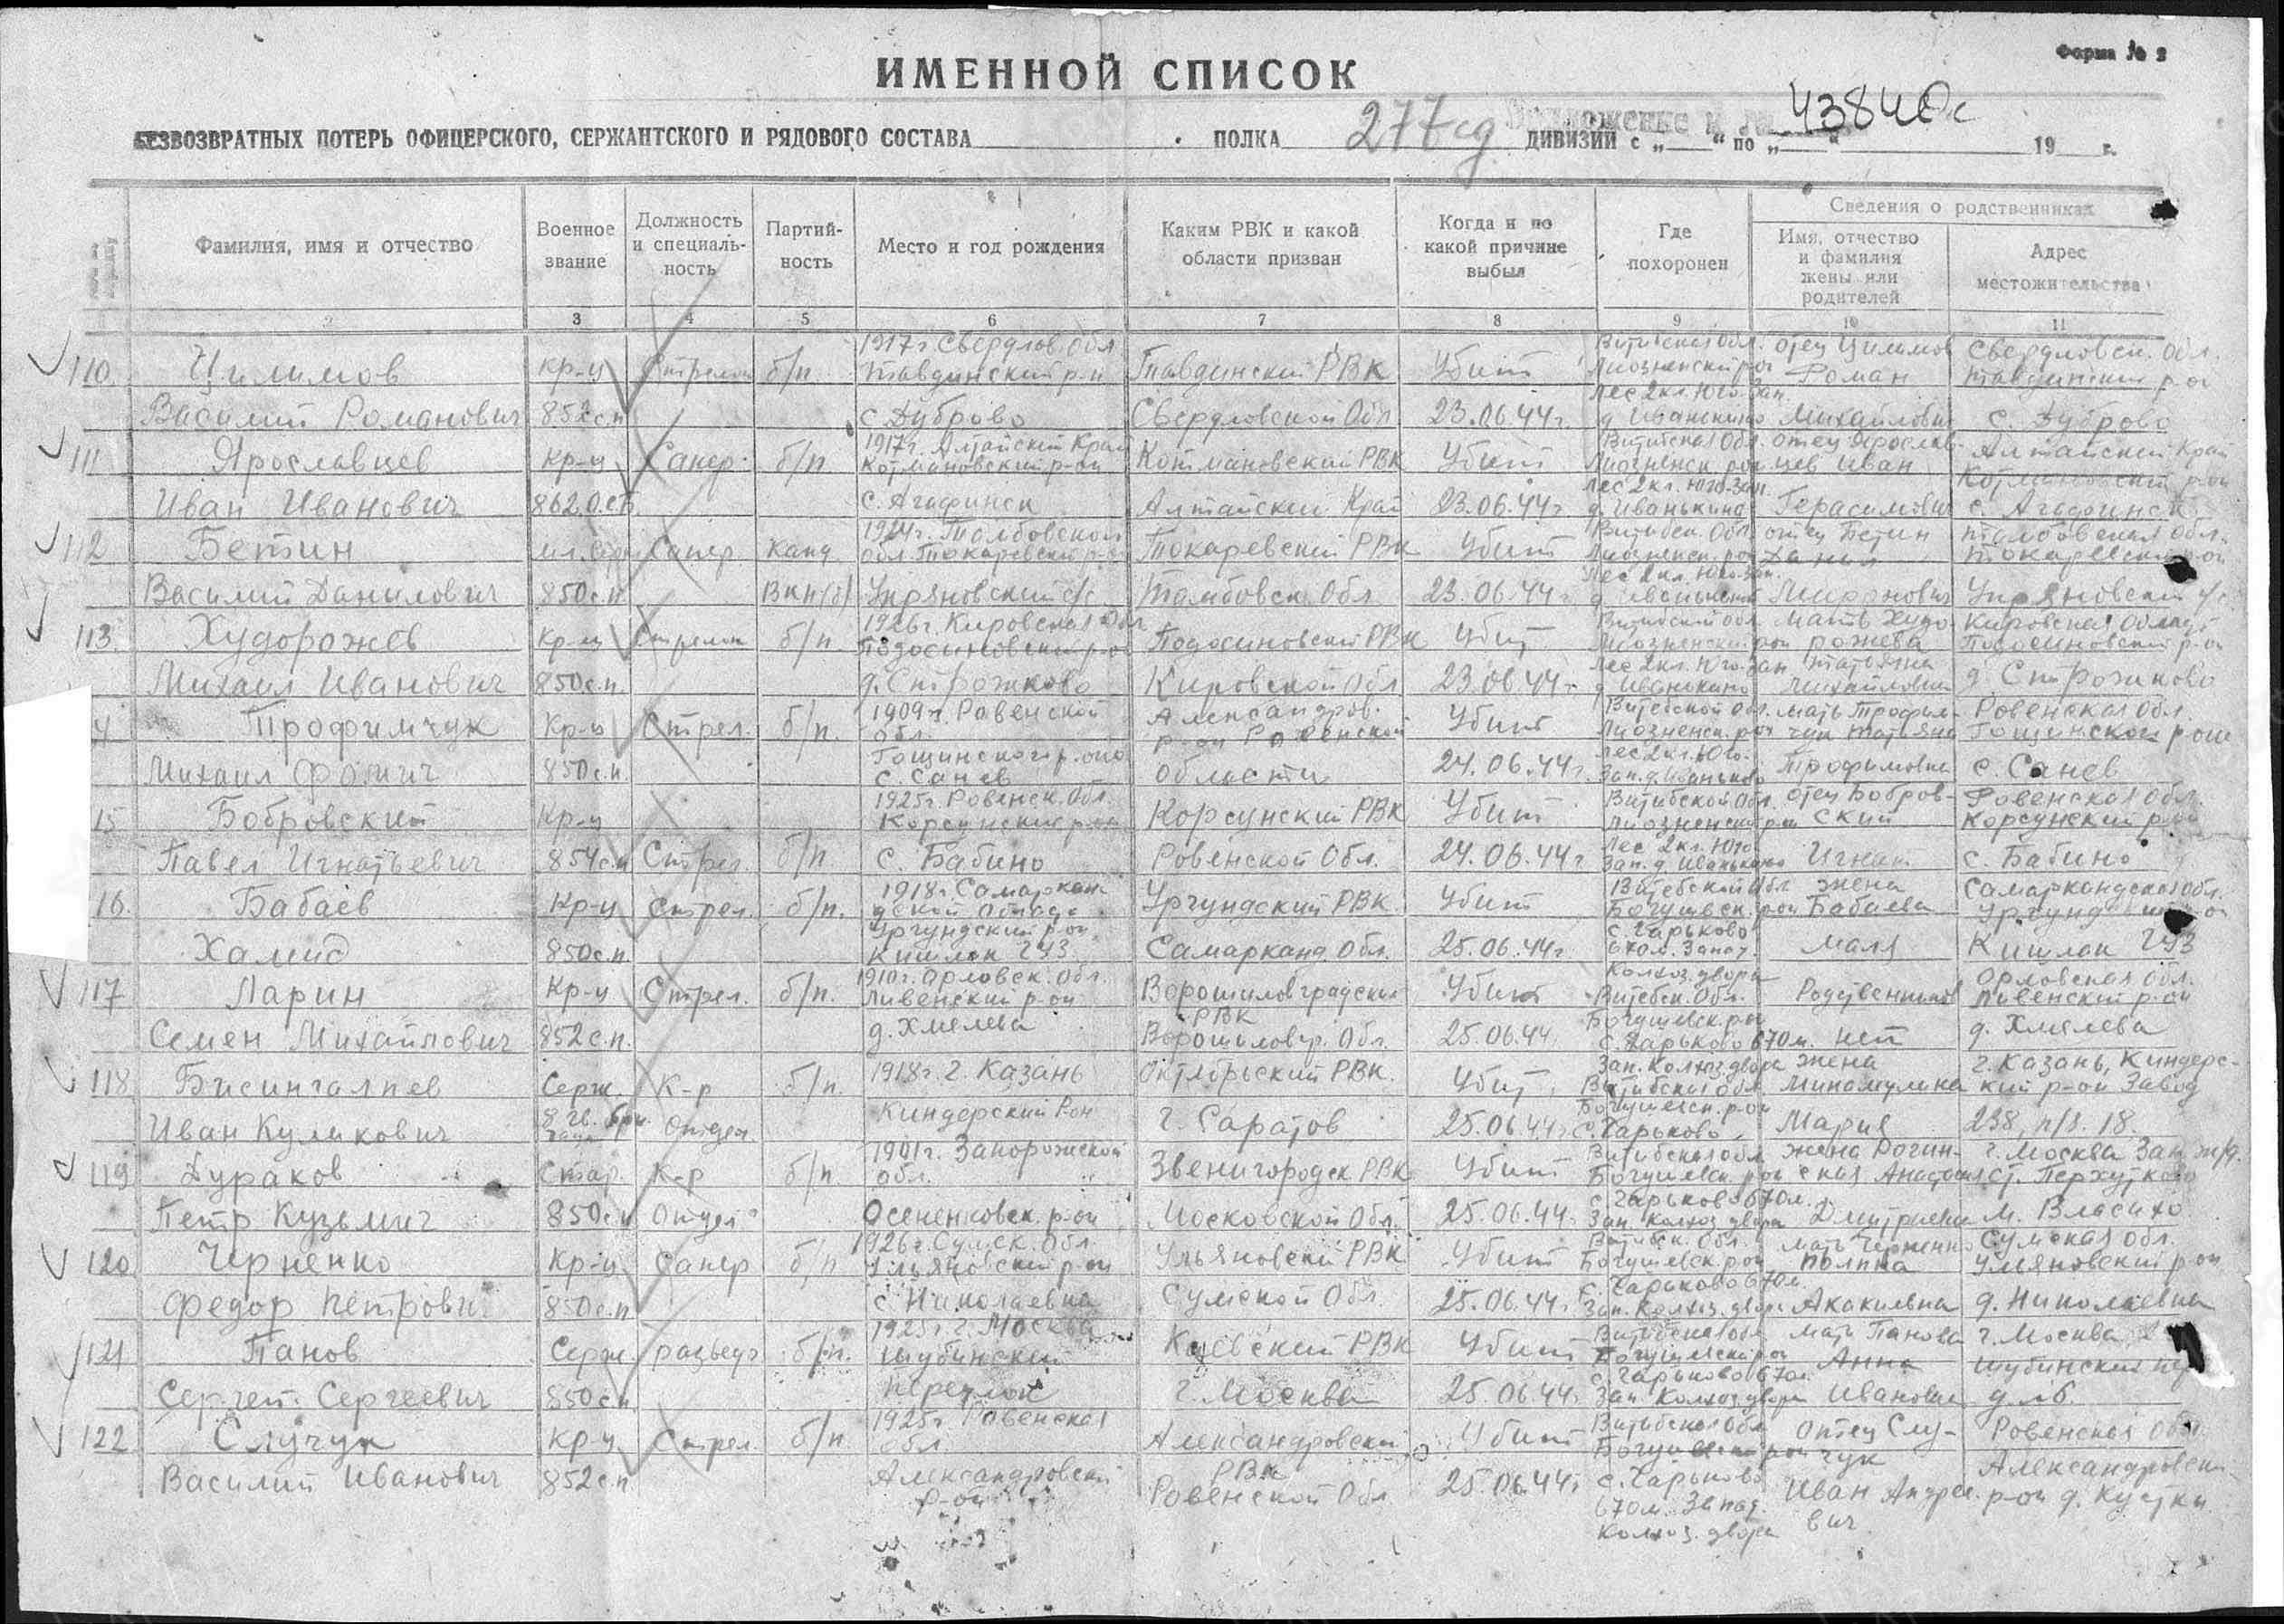 Форма № 2
ИМЕННОЙ СПИСОК
Приложение к 43840с
БЕЗВОЗВРАТНЫХ ПОТЕРЬ ОФИЦЕРСКОГО, СЕРЖАНТСКОГО И РЯДОВОГО СОСТАВА ПОЛКА 277 сд ДИВИЗИИ с „ “ по „ “ 19 г.
Фамилия, имя и отчество
Военное звание
Должность и специальность
Партийность
Место и год рождения
Каким РВК и какой области призван
Когда и по какой причине выбыл
Где похоронен
Сведения о родственниках
Имя, отчество и фамилия жены или родителей
Адрес местожительства
3 4 5 6 7 8 9 10 11
110 Цилимов Кр-ц Стрелок б/п 1917г. Свердлов. Обл. Тавдинский р-н Тавдинский РВК Убит Витебская Обл. Лиозненский р-он отец Цилимов Роман Свердловск. Обл. Тавдинский р-он
Василий Романович 852 с.п. с. Дуброво Свердловской Обл 23.06.44г. Лес 2 кл. Юго-Зап. д. Иванькино Михайлович с. Дуброво
111 Ярославцев Кр-ц Сапер б/п 1917г. Алтайский Край Котмановский р-он Котмановский РВК Убит Витебская Обл. Лиозненск. р-он отец Ярославцев Иван Алтайский Край Котмановский р-он
Иван Иванович 862 О.СБ с. Агафинск Алтайский Край 23.06.44г. Лес 2 кл. Юго-Зап. д. Иванькино Герасимович с. Агафинск
112 Бетин Сапер Канд 1924г. Толбовской обл. Токаревский р-он Токаревский РВК Убит Витебск. Обл. Лиозненск. р-он отец Бетин Данил Тамбовская обл. Токаревский р-он
Василий Данилович 850 с.п. ВКП(б) Упряновский с/с Тамбовск. Обл 23.06.44г Лес 2 кл. Юго-Зап. д. Иванькино Миронович Упряновский с/с
113. Худорожев Кр-ц Стрелок б/п 1926г. Кировская Обл Подосиновский р-он Подосиновский РВК Убит Витебской обл Лиозненский р-он мать Худорожева Кировская область Подосиновский р-он
Михаил Иванович 850 с.п. д. Строжково Кировской Обл 23.06.44г. Лес 2 кл. Юго-Зап д. Иванькино Татьяна Михайловна д. Строжиково
4 Трофимчук Кр-ц Стрел. б/п. 1909г. Ровенской обл. Александров. р-он Ровенской Убит Витебской Обл. Лиозненск. р-он мать Трофимчук Татьяна Ровенская Обл. Гощинской р-он
Михаил Фомич 850 с.п. Гощинского р-она с. Санев области 24.06.44г. Лес 2 кл. Юго-Зап. д. Иваньково Трофимовна с. Санев
15 Бобровский Кр-ц 1925г. Ровенск. Обл. Корсунский р-он Корсунский РВК Убит Витебской Обл. Лиозненский р-он отец Бобровский Ровенская Обл. Корсунский р-он
Павел Игнатьевич 854 с.п Стрел. б/п с. Бабино Ровенской Обл. 24.06.44г Лес 2 кл. Юго-Зап. д. Иванькино Игнат с. Бабино
16. Бабаев Кр-ц Стрел. б/п. 1918г. Самаркандской Область Ургундский РВК Убит Витебской Обл Богушевск. р-он жена Бабаева Самаркандская Обл. Ургундский р-он
Халид 850 с.п. Ургундский р-он, Кишлак 243 Самарканд Обл. 25.06.44г. с. Гарьково 670м. Запад. Колхоз. двора Маля Кишлак 243
117 Ларин Кр-ц Стрел. б/п. 1910г. Орловск. Обл. Ливенский р-он Ворошиловградский РВК Убит Витебск. Обл. Богушевск. р-он Родственников Орловская Обл. Ливенский р-он
Семен Михайлович 852 с.п. д. Хмелева Ворошиловгр. Обл. 25.06.44. с. Гарьково 670м. Зап. Колхоз двора нет д. Хмелева
118 Бисингалиев Серж К-р б/п. 1918г. г. Казань Октябрьский РВК. Убит. Витебская Обл Богушевск. р-он жена Минамулина г. Казань, Киндерский р-он Завод
Иван Куликович 8 гв. Отдел. Киндерский р-он г. Саратов 25.06.44г с. Гарьково Мария 238, п/я. 18.
119 Дураков Стар. К-р б/п. 1901г. Запорожской обл. Звенигородск РВК Убит Витебская обл Богушевск. р-он жена Рогинская Анастасия г. Москва Зап ж/д. ст. Перхутково
Петр Кузьмич 850 с.п Отдел Осененковск. р-он Московской Обл. 25.06.44. с. Гарьково 670м. Зап. Колхоз двора Дмитриевна м. Власихо
120 Черненко Кр-ц Сапер б/п 1926г. Сумск. Обл. Ульяновский р-он Ульяновский РВК Убит Витебск. Обл. Богушевск. р-он мать Черненко Полина Сумская обл. Ульяновский р-он
Федор Петрович 850 с.п с. Николаевка Сумской Обл. 25.06.44г. с. Гарьково 670м. Зап. Колхоз. двора Акакиевна д. Николаевка
121 Панов Серж разведч б/п. 1925г г. Москва Шубинский Киевский РВК Убит Витебская обл Богушевский р-он мать Панова Анна г. Москва 2 Шубинский пер
Сергей Сергеевич 850 с.п. переулок г. Москва 25.06.44г. с. Гарьково 670м. Зап Колхоз двора Ивановна д. №6.
122 Случук Кр-ц Стрел. б/п 1925г Ровенская обл. Александровский РВК Убит Витебская обл Богушевский р-он Отец Случук Ровенская Обл.
Василий Иванович 852 с.п. Александровский р-он Ровенской Обл 25.06.44г с. Гарьково 670м. Запад. Колхоз. двора Иван Андреевич Александровский р-он д. Кустки